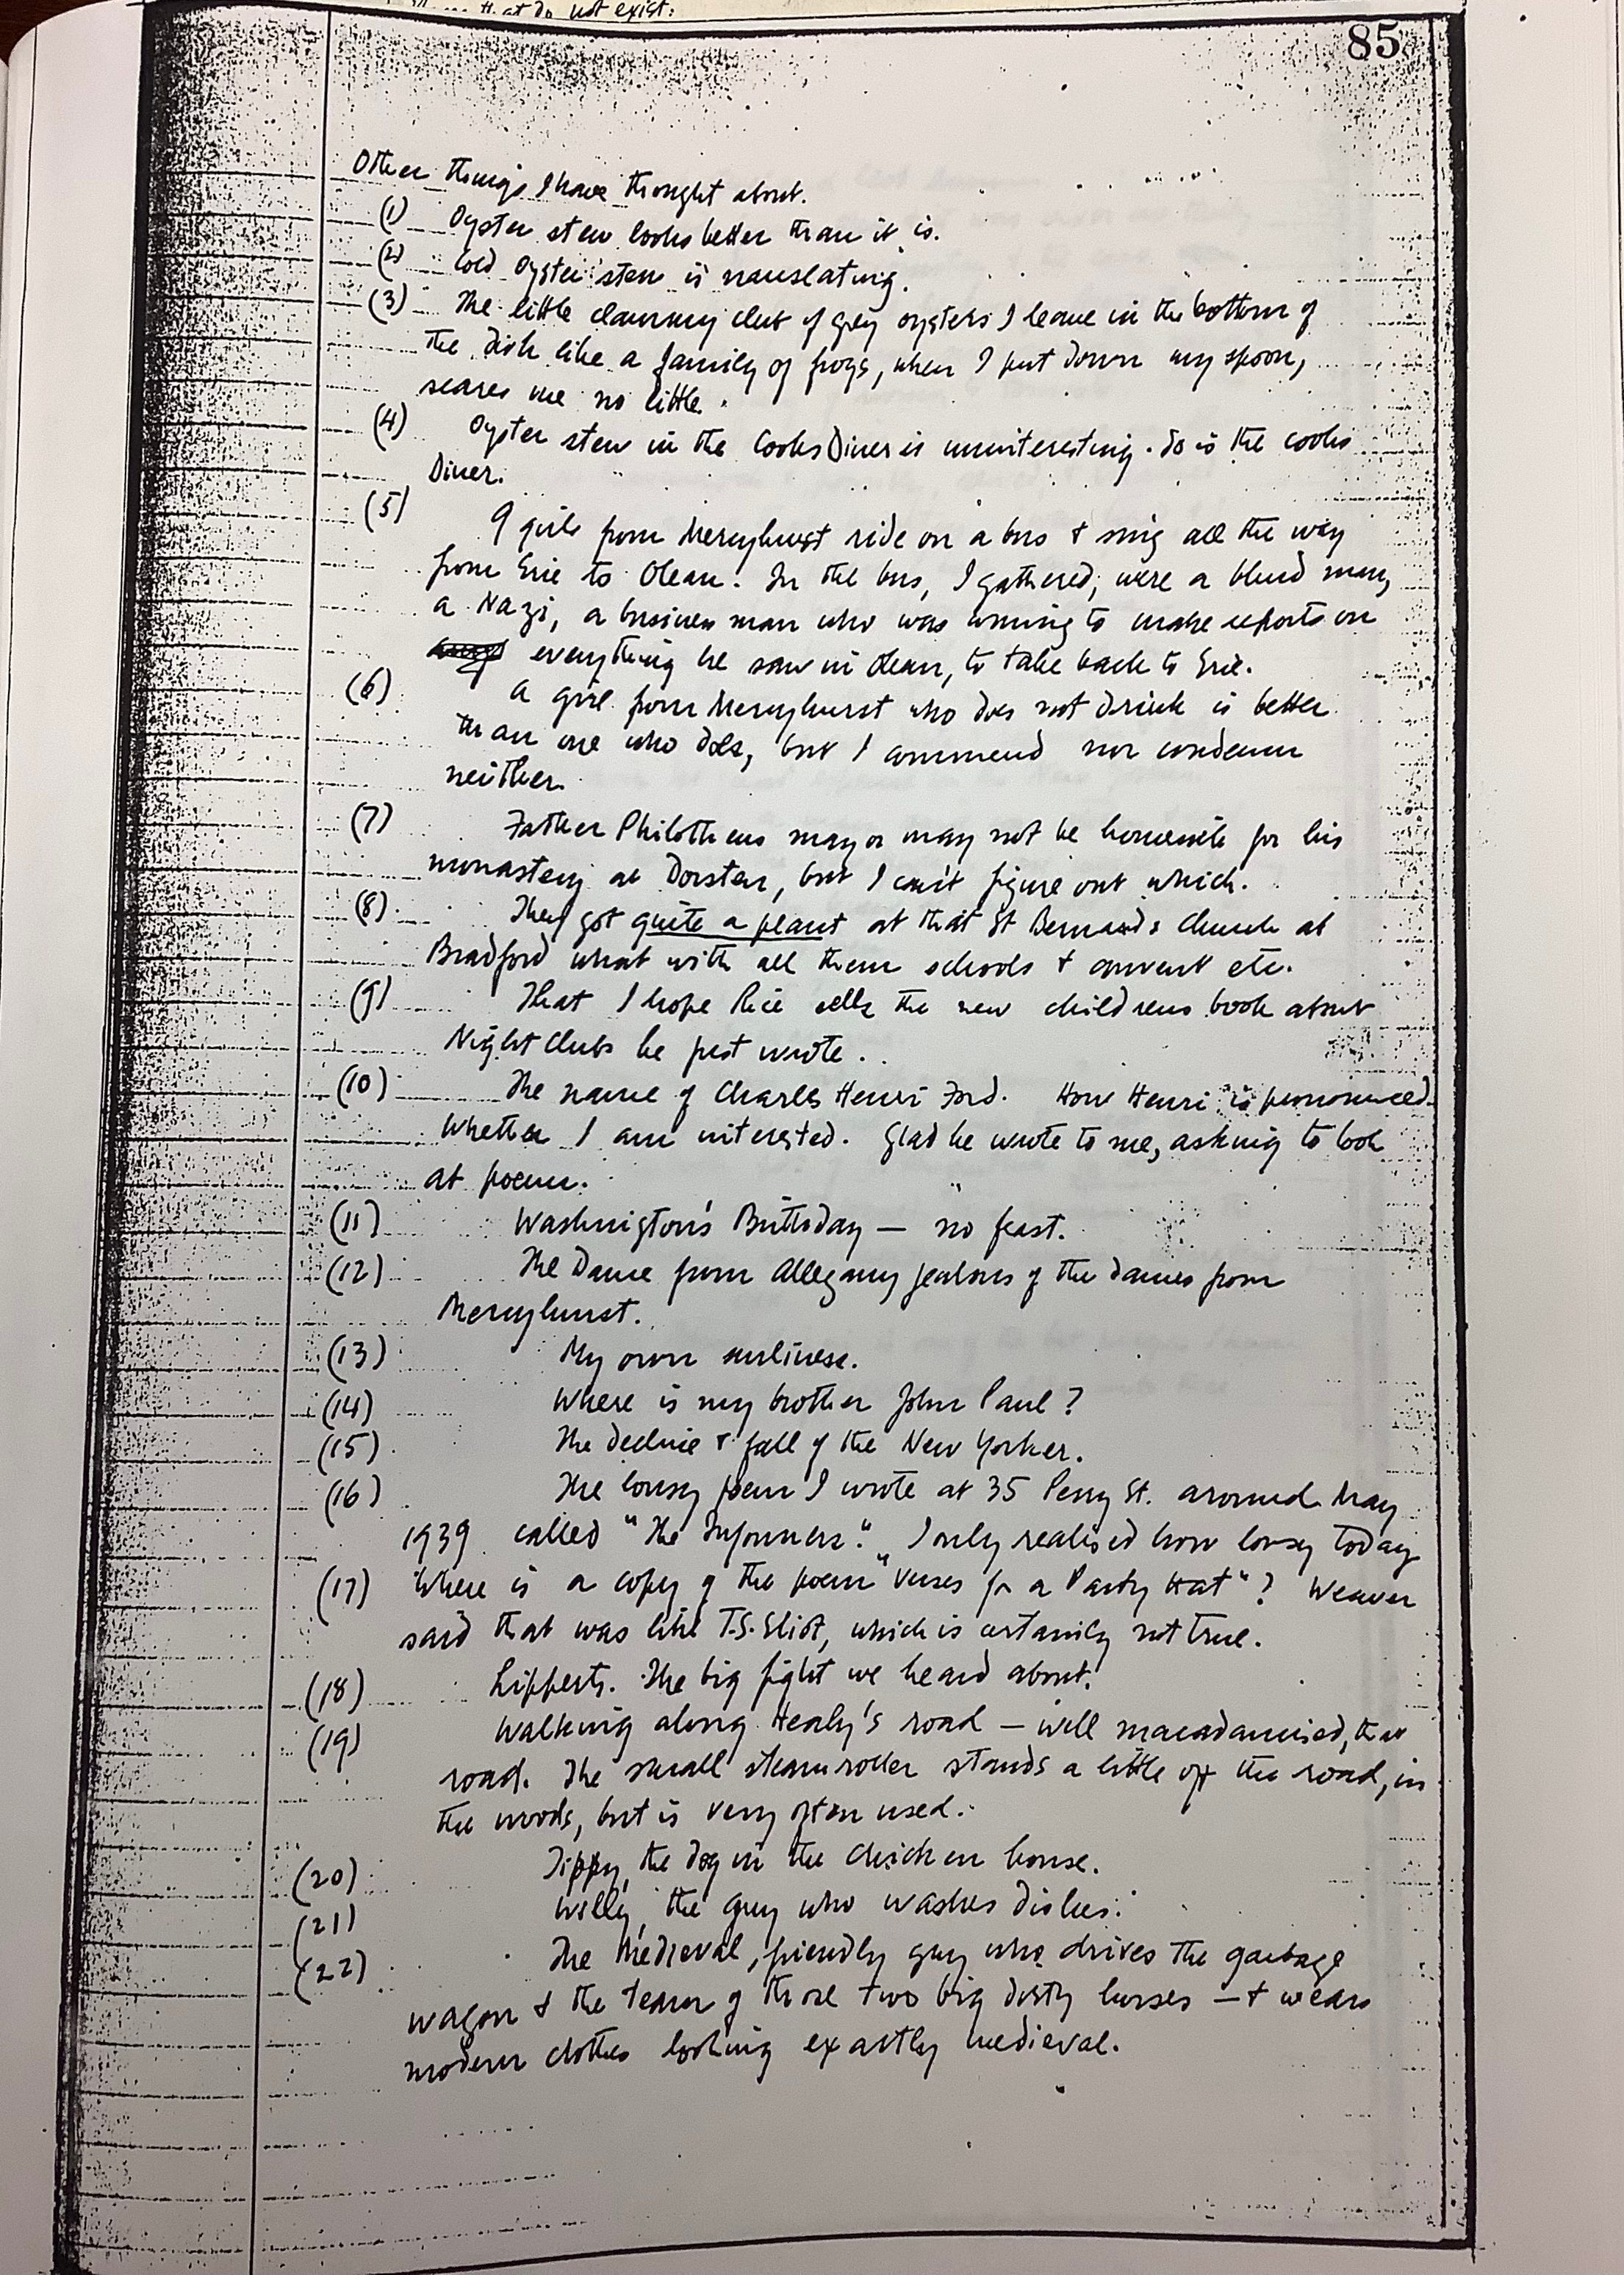 that do not exist:
85
Other things I have thought about.
(1) Oyster stew looks better than it is.
(2) Cold oyster stew is nauseating.
(3) The little clammy club of grey oysters I leave in the bottom of
the dish like a family of frogs, when I put down my spoon,
scares me no little.
(4) Oyster stew in the Cooks Diner is uninteresting. So is the Cooks
Diner.
(5) 9 girls from Mercyhurst ride on a bus & sing all the way
from Erie to Olean. In the bus, I gathered, were a blind man,
a Nazi, a business man who was coming to make reports on
everything he saw in Olean, to take back to Erie.
(6) A girl from Mercyhurst who does not drink is better
than one who does, but I commend nor condemn
neither.
(7) Father Philotheus may or may not be homesick for his
monastery at Dorsten, but I can't figure out which.
(8) They got quite a plant at that St Bernards Church at
Bradford what with all them schools & convent etc.
(9) That I hope Rice sells the new childrens book about
Night Clubs he just wrote.
(10) The name of Charles Henri Ford. How Henri is pronounced.
Whether I am interested. Glad he wrote to me, asking to look
at poems.
(11) Washington's Birthday — no feast.
(12) The Dame from Allegany jealous of the dames from
Mercyhurst.
(13) My own surliness.
(14) Where is my brother John Paul?
(15) The decline & fall of the New Yorker.
(16) The lousy poem I wrote at 35 Perry St. around May
1939 called "The Informers." I only realised how lousy today
(17) Where is a copy of the poem "Verses for a Party Hat"? Weaver
said that was like T.S. Eliot, which is certainly not true.
(18) Lipperts. The big fight we heard about.
(19) Walking along Healy's road — well macadamised, that
road. The small steamroller stands a little off the road, in
the woods, but is very often used.
(20) Jippy, the dog in the chicken house.
(21) Willy, the guy who washes dishes.
(22) The Medieval, friendly guy who drives the garbage
wagon & the team of those two big dirty horses — & wears
modern clothes looking exactly medieval.